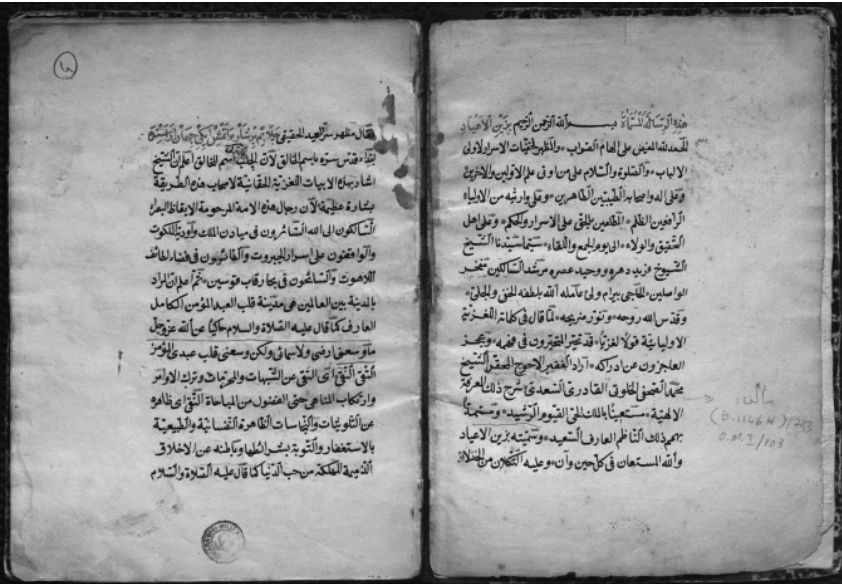 هذه الرسالة المسماة بسم الله الرحمن الرحيم بزين الاعياد
الحمد لله المفيض على الهام الصواب والمظهر الاسرار لاولى
الالباب والصلوة والسلام على من اوتى علم الاولين والاخرين
وعلى اله واصحابه الطيبين الطاهرين وعلى وارثيه من الاولياء
الرافعين الظلم المطلعين على الاسرار والحكم وعلى اهل
التحقيق والولاء الى يوم الجمع واللقاء سيما سيدنا الشيخ
الشيوخ فريد دهره ووحيد عصره مرشد السالكين مفخر
الواصلين الحاجى بيرام ولى عامله الله بلطفه الخفى والجلى
وقدس الله روحه ونور ضريحه لما قال فى كلماته اللغزية
الاوليائية قولا لغزيا قد تحير المتحيرون فى فهمه ويعجز
العاجزون عن ادراكه اراد الفقير الاحوج المحقر الشيخ
محمد الخلوتى القادرى السعدى شرح ذلك المعرفة
الالهية مستعينا بالملك الحى القيوم الرشيد ومستمدا
بهمم ذلك الناظم العارف السعيد وسميته بزين الاعياد
والله المستعان فى كل حين وان وعليه التكلان من
مؤلف
(Ö. 1146 H) 1733
O.M. I/103
٤
فقال مظهر سر العبد الحقيقى
ابتداء قدس سره باسم الخالق لان الجلب اسم للخالق اعلم ان الشيخ
اشار بهذه الابيات اللغزية الحقانية لاصحاب هذه الطريقة
بشارة عظيمة لان رجال هذه الامة المرحومة الايقاظ
السالكون الى الله السائرون فى ميادين الملك واودية الملكوت
والواقفون على اسرار الجبروت والطائرون فى فضاء لطائف
اللاهوت والسابحون فى بحار قاب قوسين ثم اعلم ان المراد
بالمدينة بين العالمين هى مدينة قلب العبد المؤمن الكامل
العارف كما قال عليه الصلاة والسلام حاكيا عن الله عز وجل
ما وسعنى ارضى ولا سمائى ولكن وسعنى قلب عبدى المؤمن
التقى النقى اى التقى عن الشبهات والمحرمات وترك الاوامر
وارتكاب المناهى حتى الفضول من المباحات النقى اى ظاهره
عن التلويثات والنجاسات الظاهرة النفسانية والطبيعية
بالاستغفار والتوبة بشرائطها وباطنه عن الاخلاق
الذميمة المهلكة من حب الدنيا كما قال عليه الصلاة والسلام